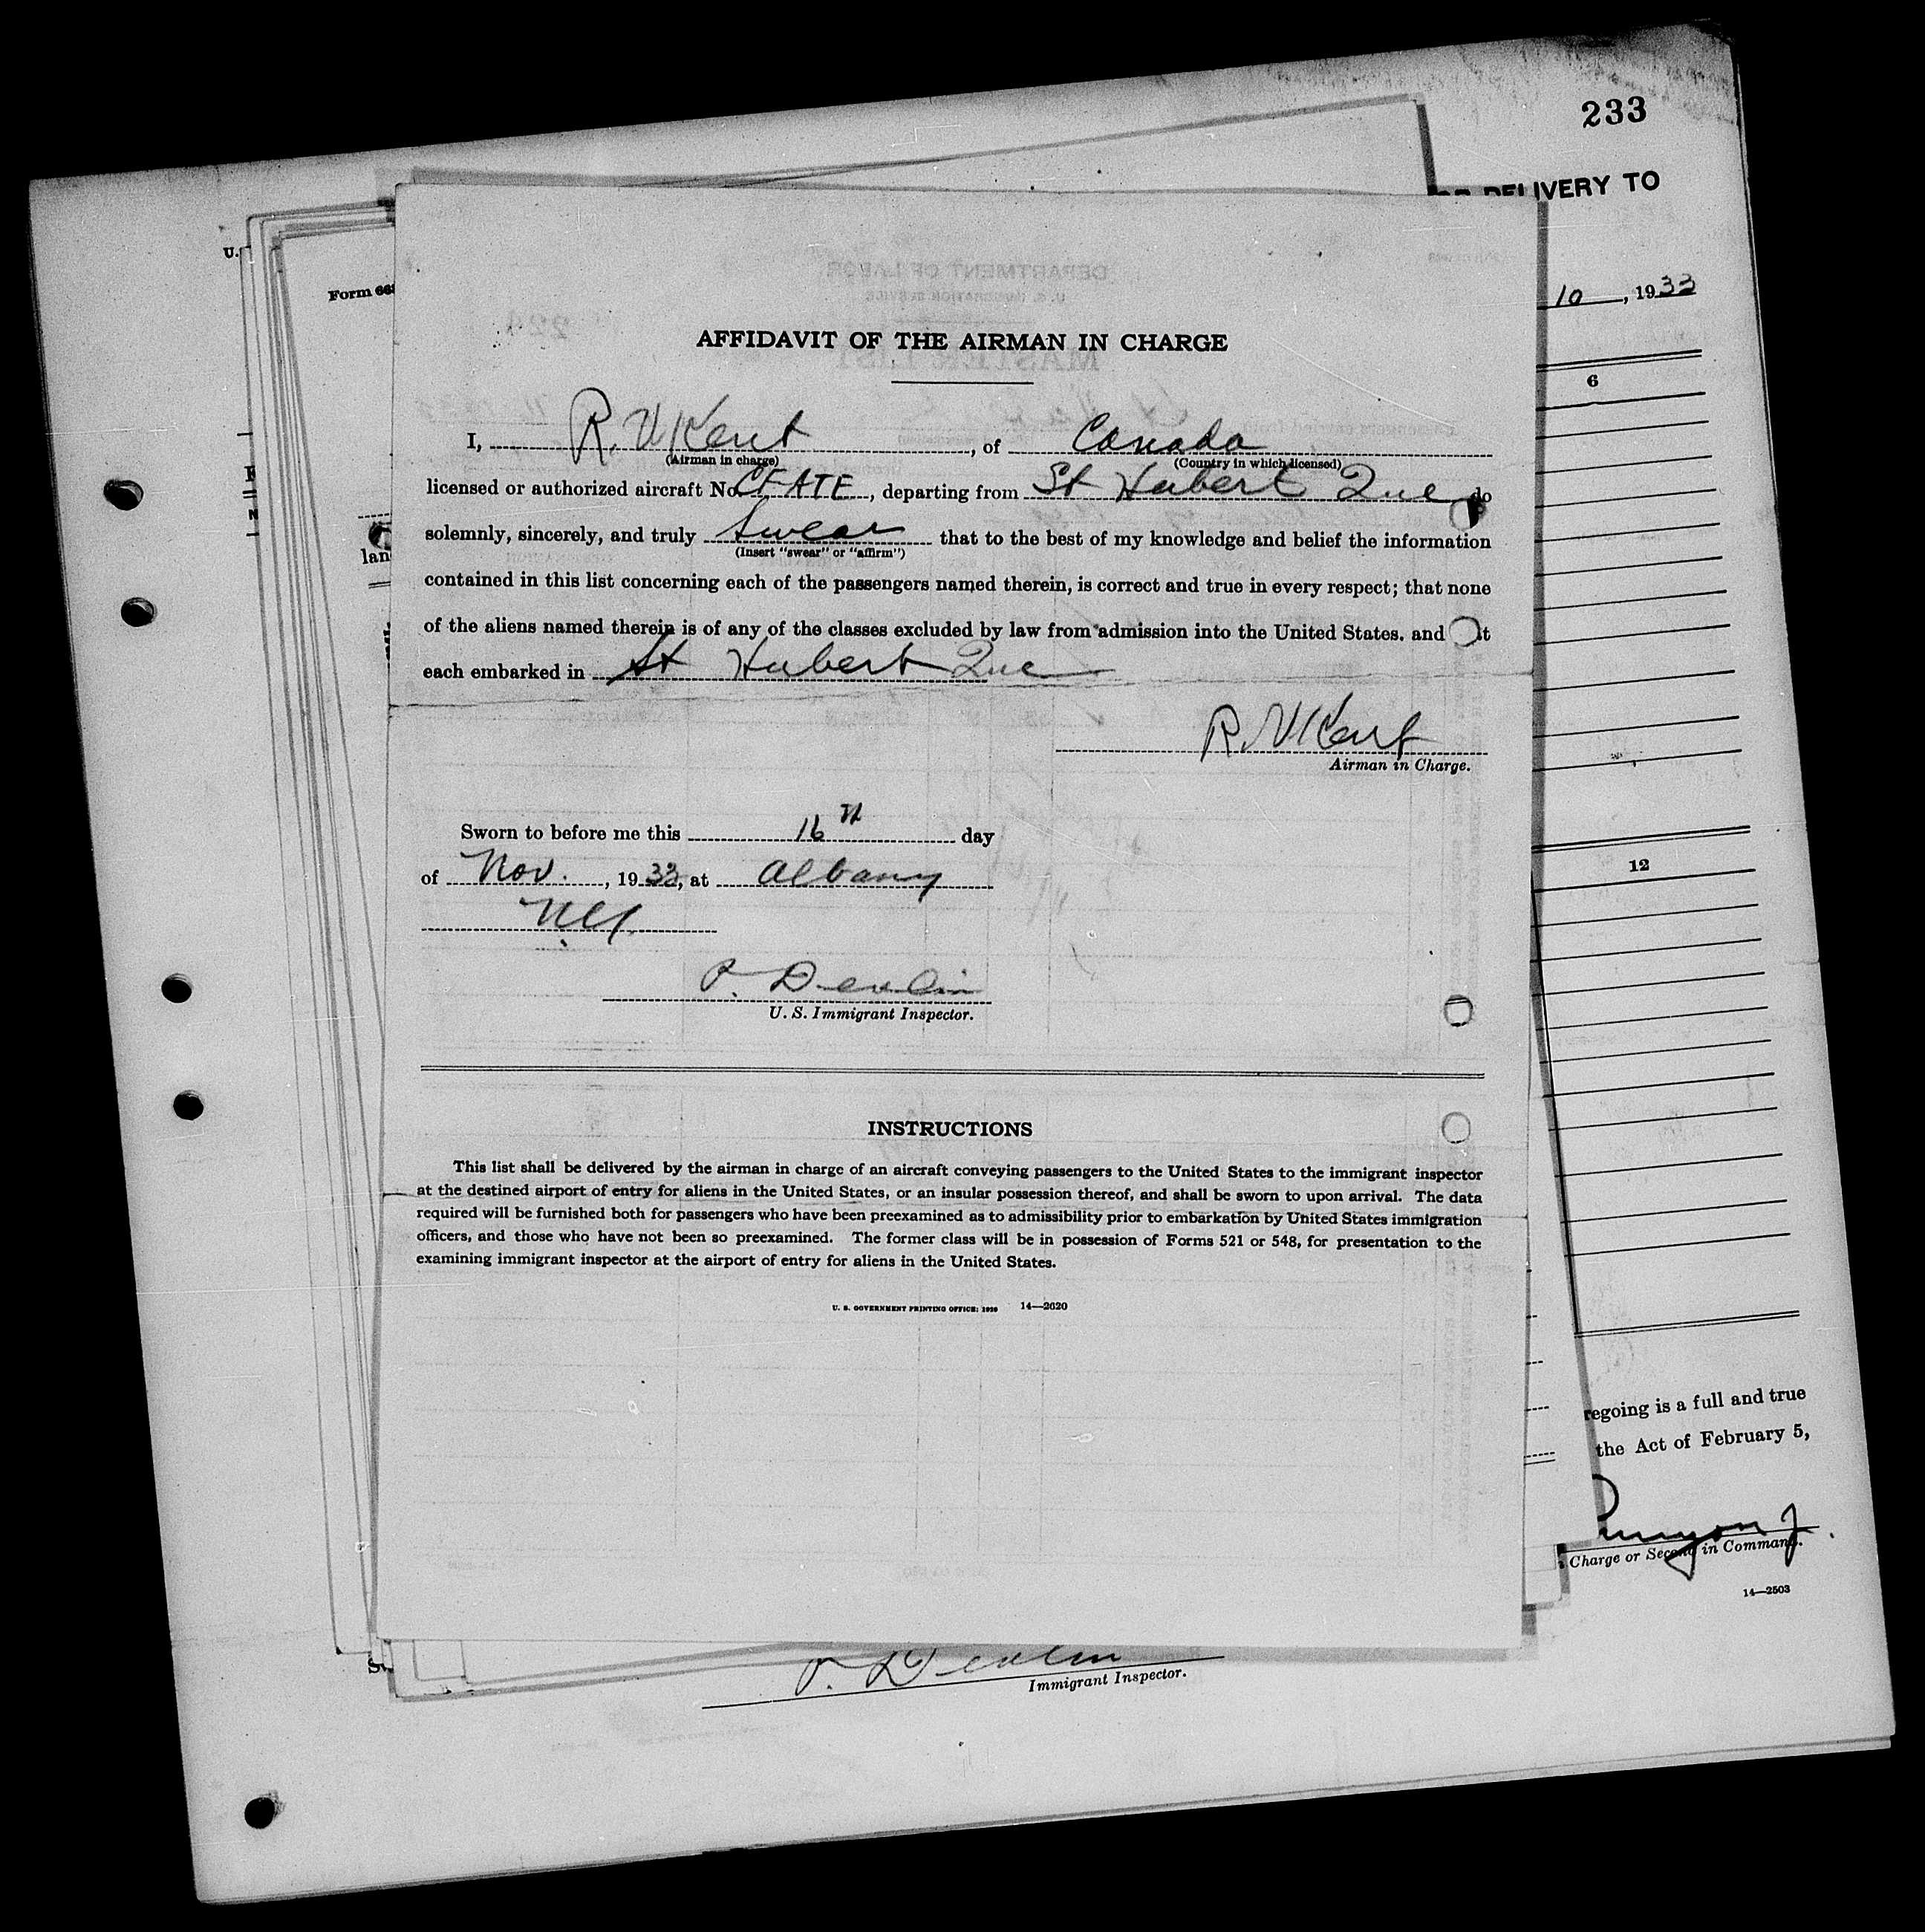 233
DELIVERY TO
U.
Form 66
10, 1933
6
AFFIDAVIT OF THE AIRMAN IN CHARGE
I, R. V Kent, of Canada
(Airman in charge) (Country in which licensed)
licensed or authorized aircraft No. CFATE, departing from St Hubert Que do
solemnly, sincerely, and truly swear that to the best of my knowledge and belief the information
(Insert "swear" or "affirm")
contained in this list concerning each of the passengers named therein, is correct and true in every respect; that none
of the aliens named therein is of any of the classes excluded by law from admission into the United States. and
each embarked in St Hubert Que
R. V Kent
Airman in Charge.
Sworn to before me this 16th day
of Nov., 1933, at Albany
N.Y.
12
P. Devlin
U. S. Immigrant Inspector.
INSTRUCTIONS
This list shall be delivered by the airman in charge of an aircraft conveying passengers to the United States to the immigrant inspector
at the destined airport of entry for aliens in the United States, or an insular possession thereof, and shall be sworn to upon arrival. The data
required will be furnished both for passengers who have been preexamined as to admissibility prior to embarkation by United States immigration
officers, and those who have not been so preexamined. The former class will be in possession of Forms 521 or 548, for presentation to the
examining immigrant inspector at the airport of entry for aliens in the United States.
U. S. GOVERNMENT PRINTING OFFICE: 14—2620
regoing is a full and true
the Act of February 5,
Charge or Second in Command.
14—2503
P. Devlin
Immigrant Inspector.